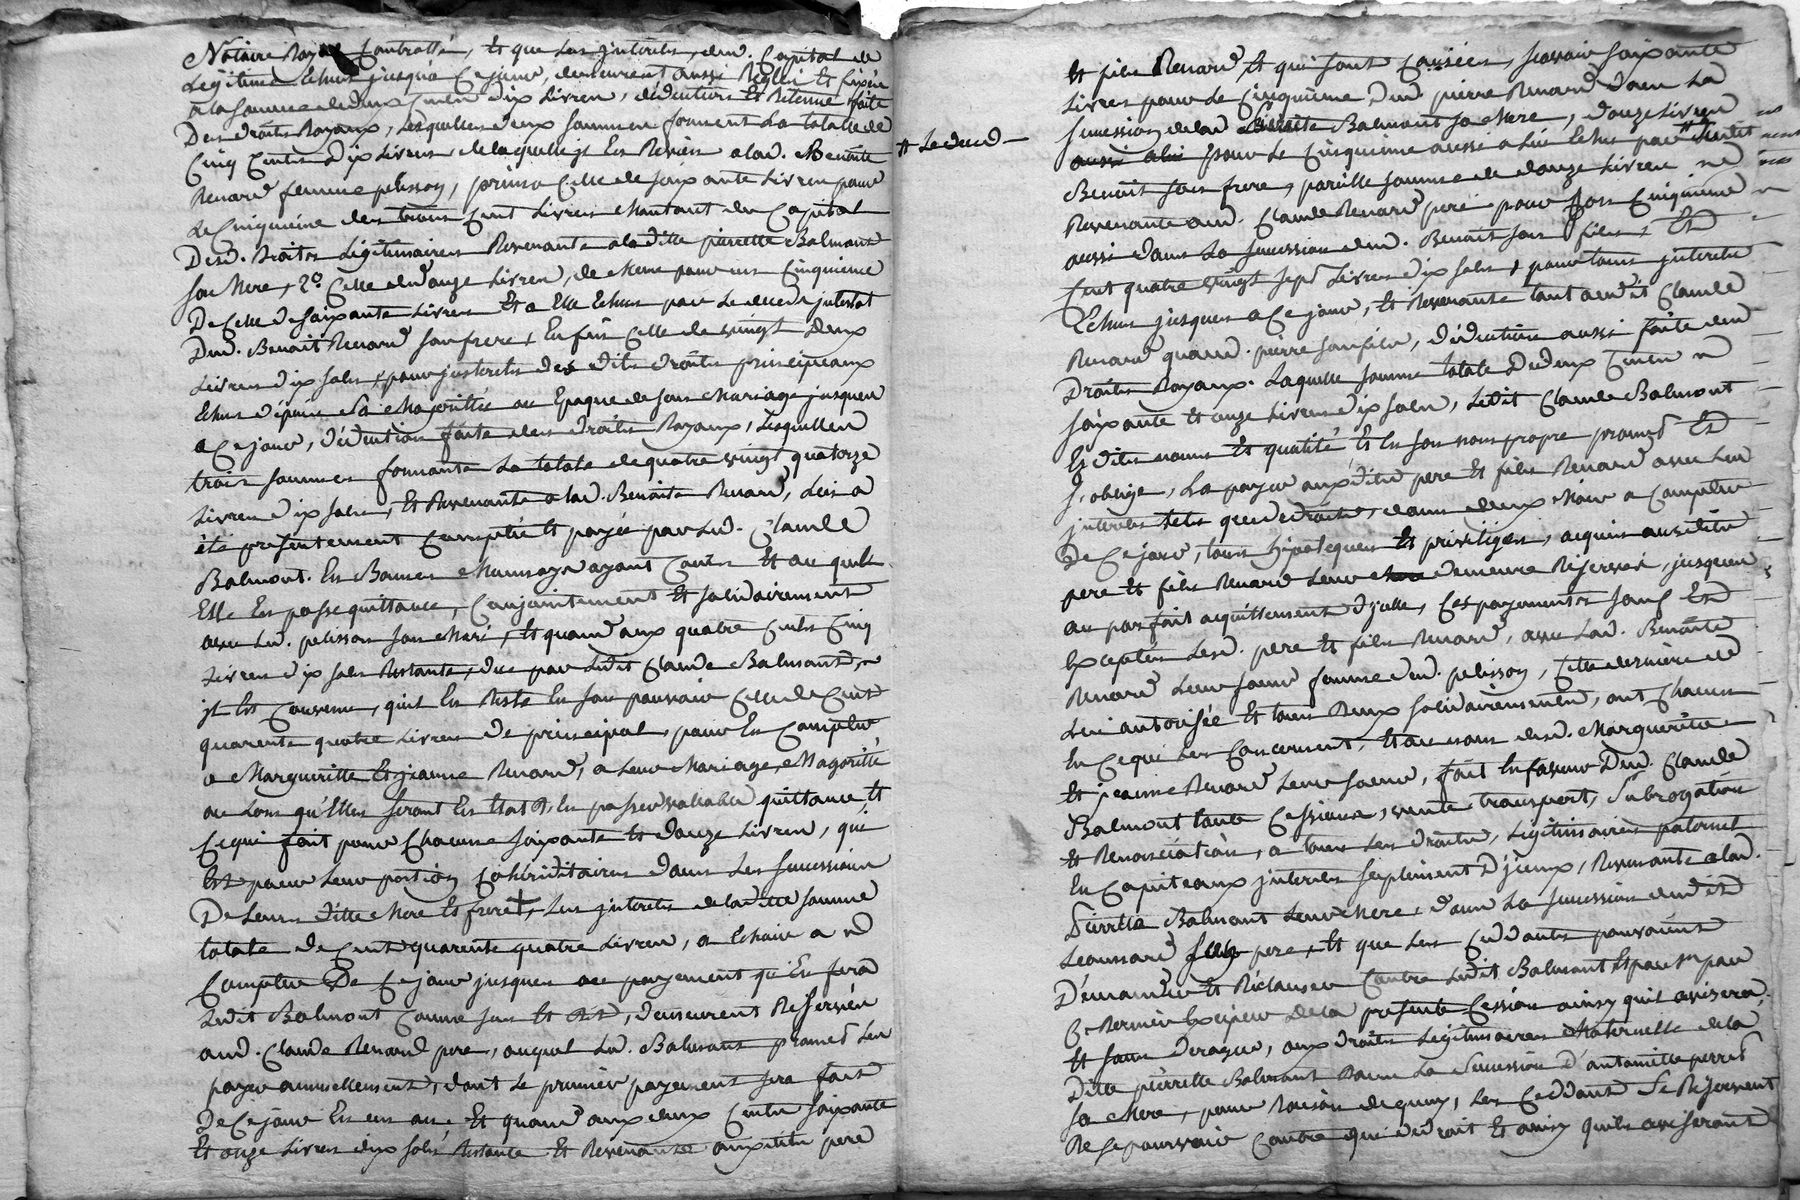 Notaire Royal Contratté, Et que Les jnterets, dud. Capital de
Légitime Echus jusqu'a Cejour, demeurent aussi Réglés Et fixés
a la somme de deux Cents dix Livres, déduction Et Retenue faite
Des droits Royaux, Lesquelles deux sommes forment La totale de
Cinq Cents dix Livres de laquelle jl En Revient a lad. Benoite
Renard femme pelisson, primo Celle de soixante Livres pour
Le Cinquième des trois Cent Livres Montant du Capital
Desd. Droits Légitimaires Revenants a la ditte pierrette Balmont
sa Mere, 2.° Celle de douze Livres, de Meme pour un Cinquieme
De Celle de soixante Livres Et a Elle Echus par Le deceds jntestat
Dud. Benoit Renard son frere, En fin Celle de vingt deux
Livres dix sols, pour jnterets des dits droits principeaux
Echus dépuis Sa Majorittée ou Epoque de son Mariage jusques
a Cejour, déduction faite des droits Royaux, Lesquelles
trois sommes formants La totale de quatre vingt quatorze
Livres dix sols, Et Revenante a lad. Benoite Renard, Lui a
été presentement Comptée Et payée par Led. Claude
Balmont. En Bonnes Monnoye ayant Cours Et au quel
Elle En passe quittance, Conjointement Et solidairement
avec Led. pelisson son Mari, Et quand aux quatre Cents Cinq
Livres dix sols Restants, due par Ledit Claude Balmont,
jl Est Convenu, qu'il En Reste En son pouvoir Celle de Cent
quarente quatre Livres De principal, pour En Compter
a Margueritte Et jeanne Renard, a Leur Mariage, Magorité
ou Lors qu'Elles seront En Etat d'En passer vallable quittance, Et
Ce qui fait pour Chacune soixante Et douze Livres, qui
Est pour Leur portion Cohériditaires dans Les successions
De Leurs ditte Mere Et frere, Les jnterets de la ditte somme
totale de Cent quarente quatre Livres, a Echoir a
Compter De Cejour jusques au payement qu'En fera
Ledit Balmont Comme sus Est dit, demeurent Réservés
aud. Claude Renard pere, auquel Led. Balmont promet Les
payer annuellement, dont Le premier payement sera fait
De Cejour En un an. Et quand aux deux Cents soixante
Et onze Livres dix sols Restants Et Revenants auxdits pere
Et fils Renard, Et qui sont Causées, scavoir soixante
Livres pour Le Cinquieme Dud. pierre Renard dans La
succession de lad. Pierrette Balmont sa Mere, douze Livres
aussi pour Le Cinquieme aussi a Lui Echus par Ledit
# Le deced
Benoit son frere, pareille somme de douze Livres
Revenante aud. Claude Renard pere pour son Cinquieme
aussi dans La succession dud. Benoit son fils, Et
Cent quatre vingt sept Livres dix sols, pour tous jnterets
Echus jusques a Cejour, Et Revenants tant audit Claude
Renard quaud. pierre son fils, déduction aussi faite des
Droits Royaux. Laquelle somme totale De deux Cents
soixante Et onze Livres dix sols, Ledit Claude Balmont
Es dits noms Et qualité Et En son nom propre promet Et
s'oblige, La payer auxdits pere Et fils Renard avec Les
jnterets tels que de droits, dans deux Mois a Compter
De Cejour, tous hipotèques Et privilèges, acquis auxdits
pere Et fils Renard Leur demeure Réservés, jusques
au parfait acquittement d'jcelle, Ces payements sauf Et
Exceptés Lesd. pere Et fils Renard, avec Lad. Benoite
Renard Leur soeur femme dud. pelisson, Cette derniere de
Lui autorisée Et tous Deux solidairement, ont Chacun
En Ce qui Les Concernent, Et au nom desd. Marguerite
Et jeanne Renard Leur soeurs, fait En faveur Dud. Claude
Balmont toute Cessions, vente, transport, Subrogation
Et Renonciation, a tous Les droits, Légitimaires paternel
En Capiteaux jnterets seuplément D'jceux, Revenants a lad.
Pierrette Balmont Leur Mere, dans La succession dudit
Leonnard son pere, Et que Les Cedants pouvoient
Démander Et Réclamer Contre Ledit Balmont Et par
Et sans Deroger, aux droits Légitimaires Maternelle de la
Ditte pierrette Balmont dans La Succession D'antoinette perret
sa Mere, pour Raison de quoy, Les Cedants Se Réservent
De se pourvoir Contre qui de droit Et ainsy quils aviseront